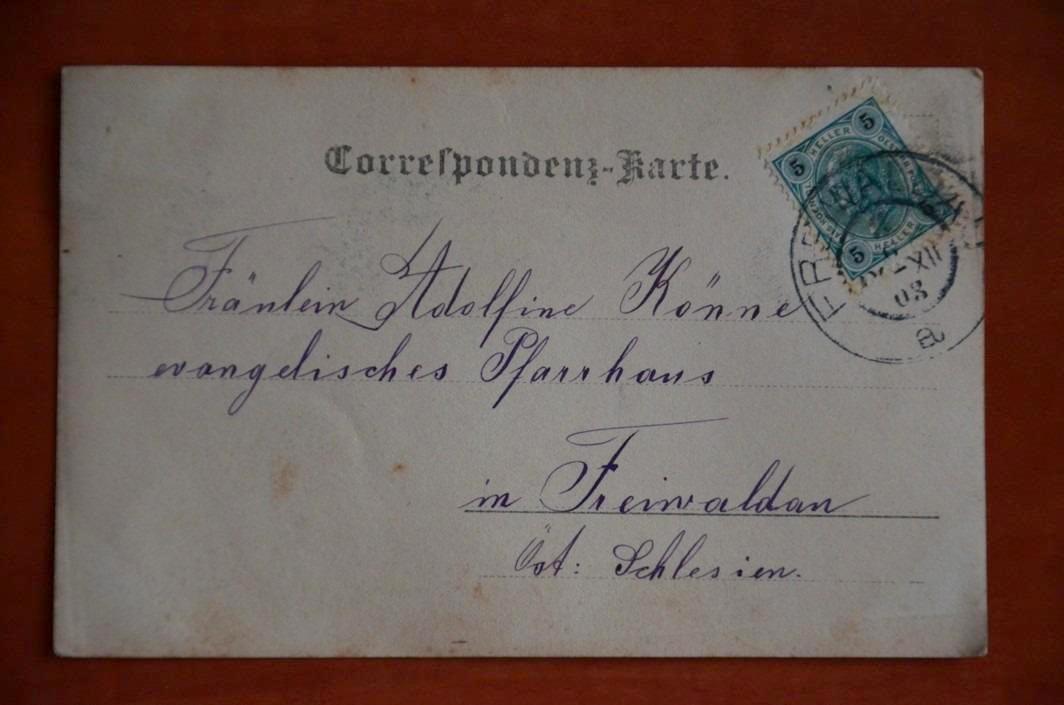 Correspondenz-Karte.
5 HELLER 5
5 HELLER
XII
03
a
Fräulein Adolfine Könne
evangelisches Pfarrhaus
in Freiwaldau
Öst: Schlesien.